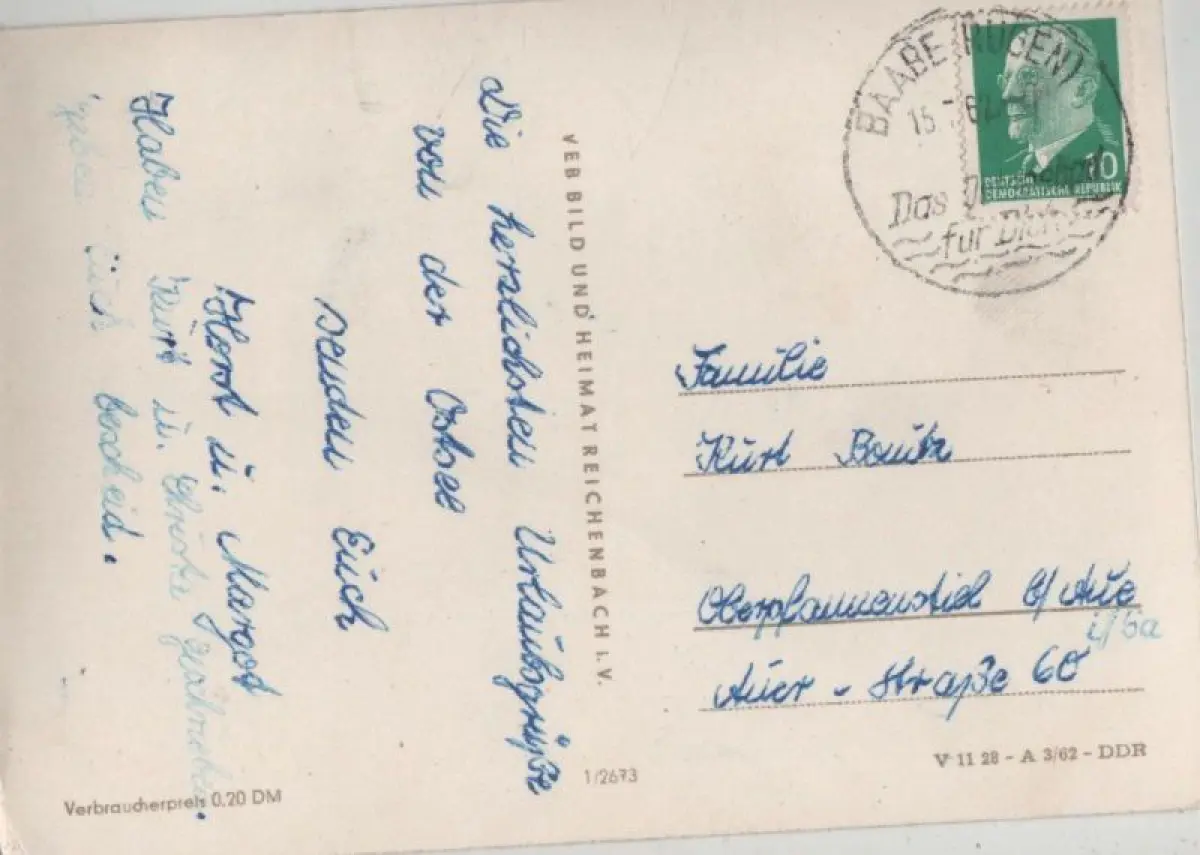 Die herzlichsten Urlaubsgrüße
von der Ostsee
senden Euch
Horst u. Margot
Haben Kurt u. Christa geschrieben.
geben Euch bescheid.
VEB BILD UND HEIMAT REICHENBACH I. V.
BAABE (RÜGEN)
15 62
Das
für Dich
10
DEUTSCHE
DEMOKRATISCHE REPUBLIK
Familie
Kurt Bonitz
Oberpfannenstiel b/ Aue
i/ Sa
Auer - Straße 60
V 11 28 - A 3/62 - DDR
1/2673
Verbraucherpreis 0,20 DM